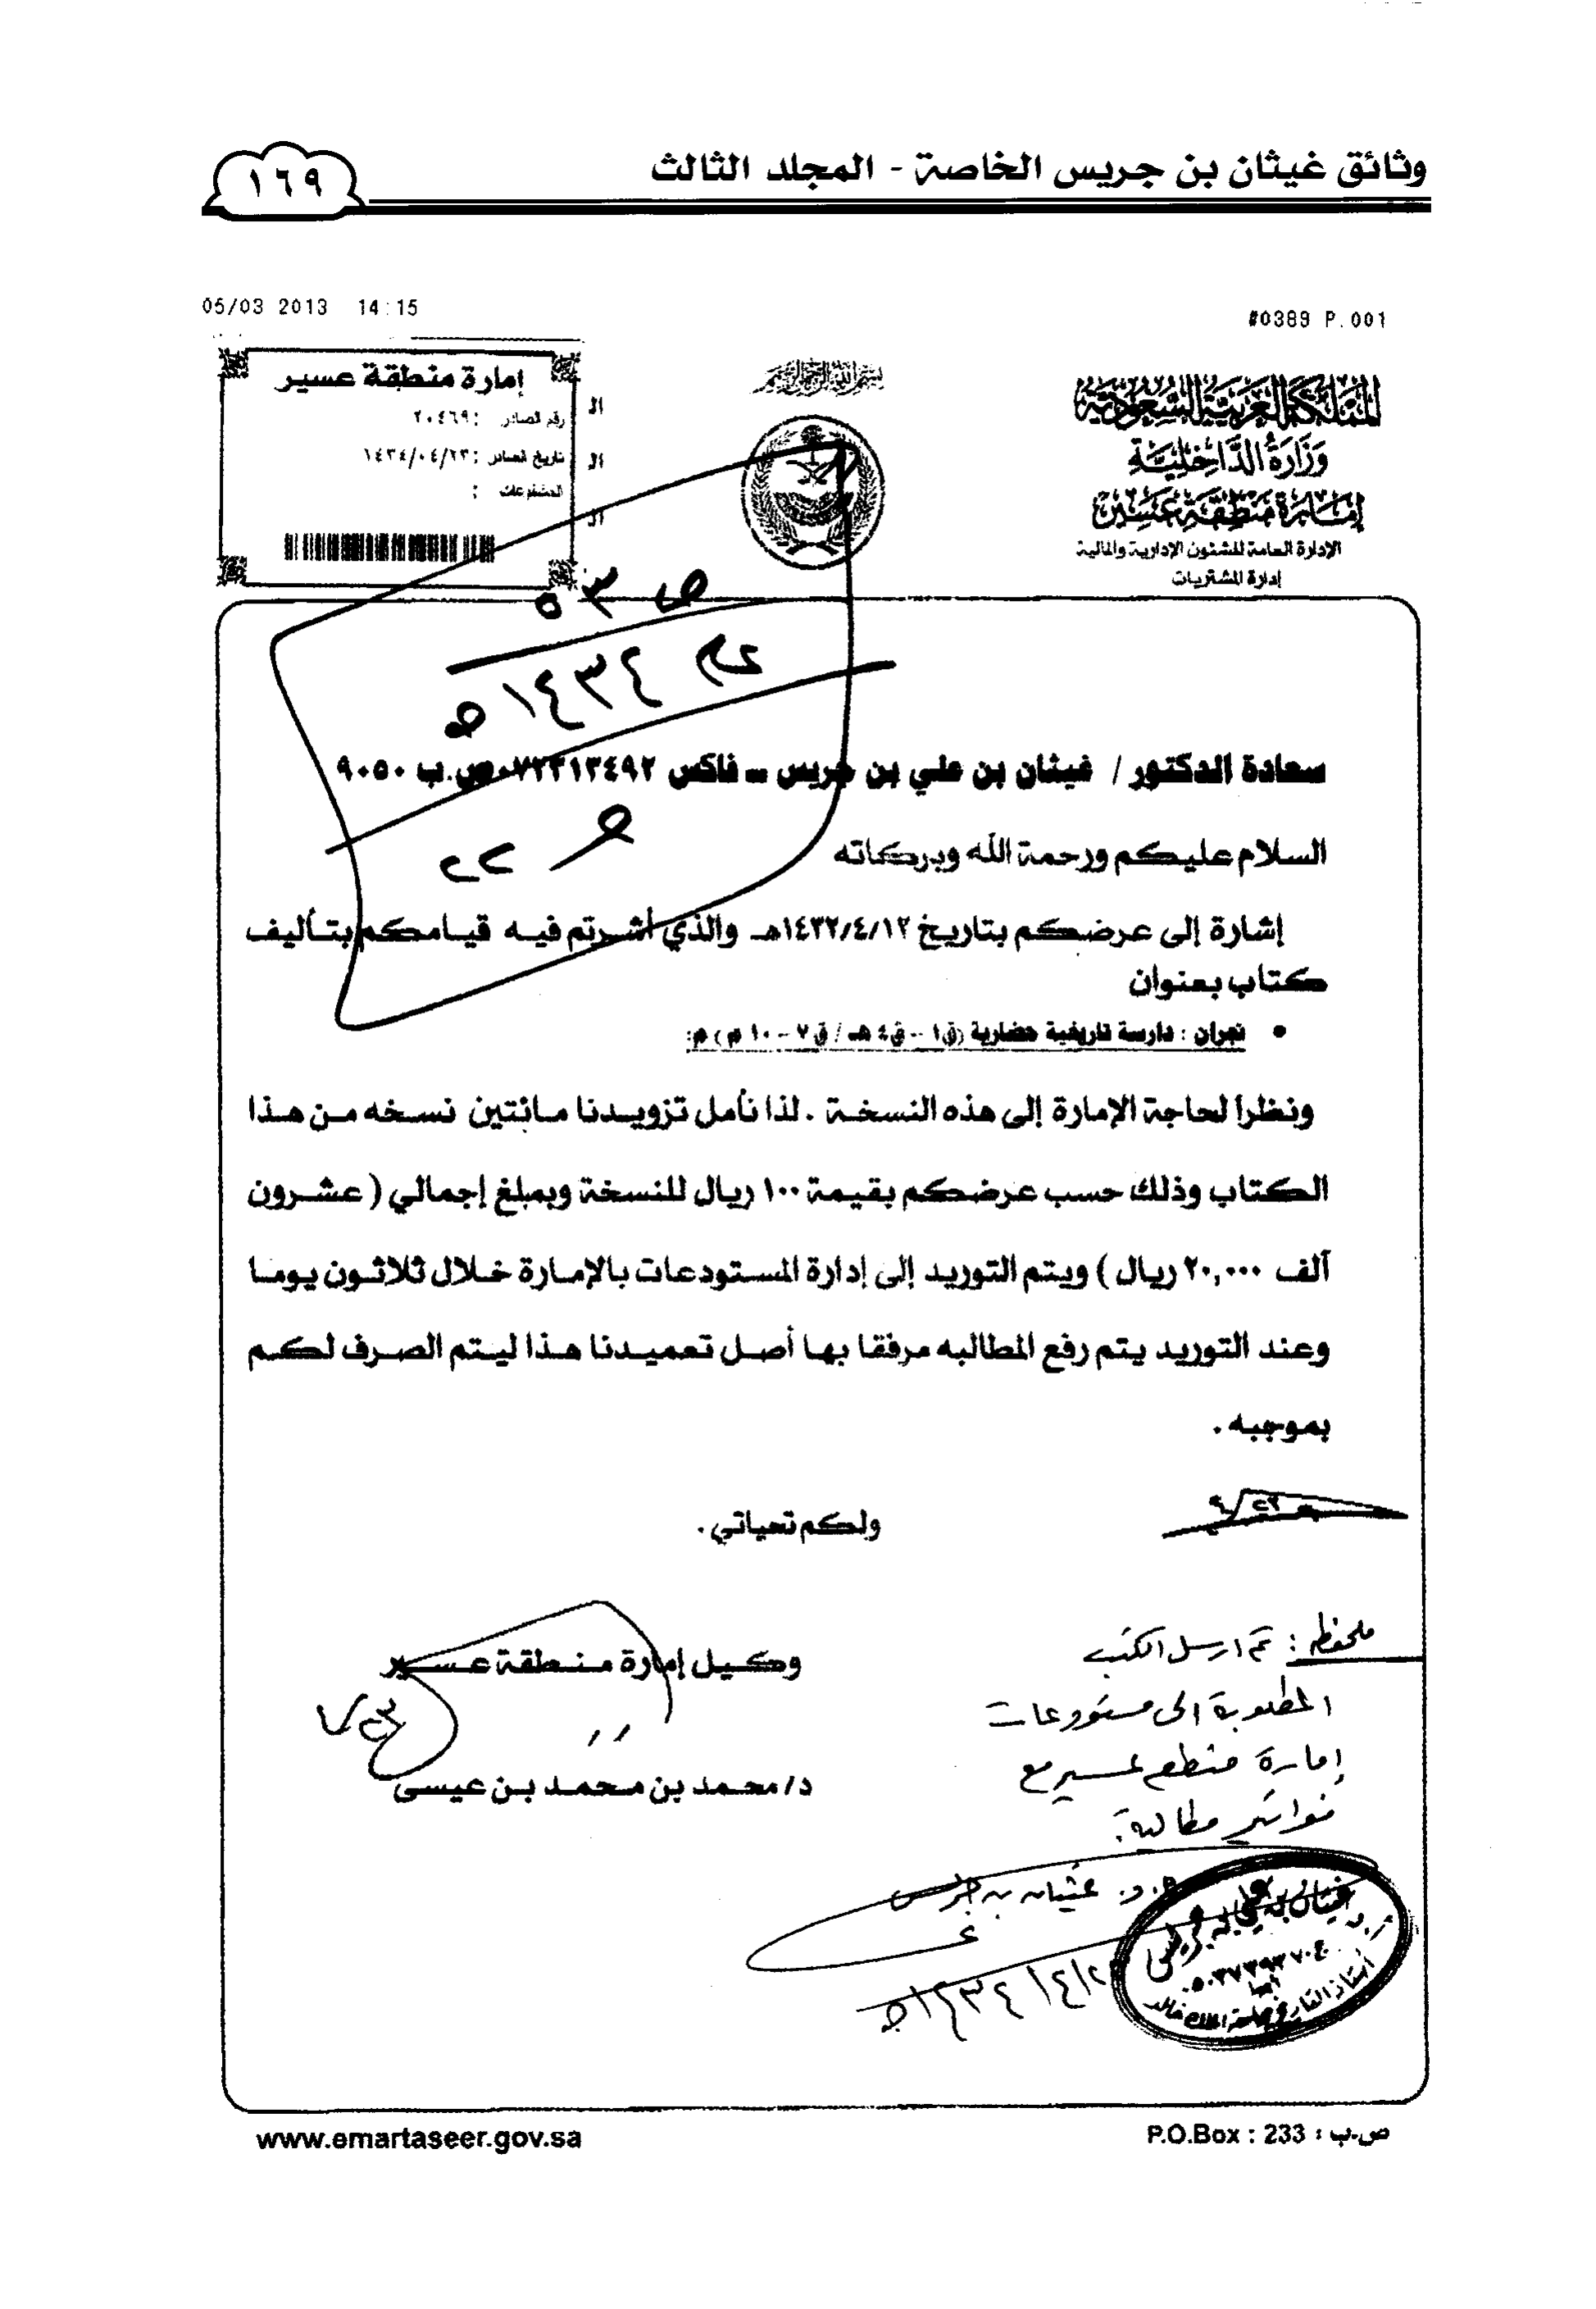 وثائق غيثان بن جريس الخاصة - المجلد الثالث
١٦٩
05/03 2013 14:15
#0389 P.001
المملكة العربية السعودية
وزارة الداخلية
إمارة منطقة عسير
الإدارة العامة للشئون الإدارية والمالية
إدارة المشتريات
بسم الله الرحمن الرحيم
إمارة منطقة عسير
رقم الصادر : ٢٠٤٦٩
تاريخ الصادر : ١٤٣٤/٠٤/٢٣
المشفوعات :
ص ٥٣
عم ١٤٣٤ه
سعادة الدكتور / غيثان بن علي بن جريس – فاكس ٠٧٢٣١٣٤٩٢ ص.ب ٩٠٥٠
السلام عليكم ورحمة الله وبركاته
إشارة إلى عرضكم بتاريخ ١٤٣٢/٤/١٢هـ والذي أشرتم فيه قيامكم بتأليف
كتاب بعنوان
• نجران : دارسة تاريخية حضارية (ق١ – ق٤ هـ / ق٧ – ١٠ م) م:
ونظراً لحاجة الإمارة إلى هذه النسخة . لذا نأمل تزويدنا مائتين نسخه من هذا
الكتاب وذلك حسب عرضكم بقيمة ١٠٠ ريال للنسخة وبمبلغ إجمالي ( عشرون
آلف ٢٠,٠٠٠ ريال ) ويتم التوريد إلى إدارة المستودعات بالإمارة خلال ثلاثون يوما
وعند التوريد يتم رفع المطالبه مرفقا بها أصل تعميدنا هذا ليتم الصرف لكم
بموجبه .
ولكم تحياتي .
وكيل إمارة منطقة عسير
د/ محمد بن محمد بن عيسى
ملحوظه : تم ارسل الكتب
المطلوبة الى مستودعات
إمارة منطقة عسير مع
فواتير مطالبة.
أ.د. غيثان بن جريس
١٤٣٤/٤/٢ه
أ.د. غيثان بن علي بن جريس
٠٥٠٣٧٣٩٣٧٠٤
أبها
أستاذ التاريخ بجامعة الملك خالد
www.emartaseer.gov.sa
P.O.Box : 233 : ص.ب